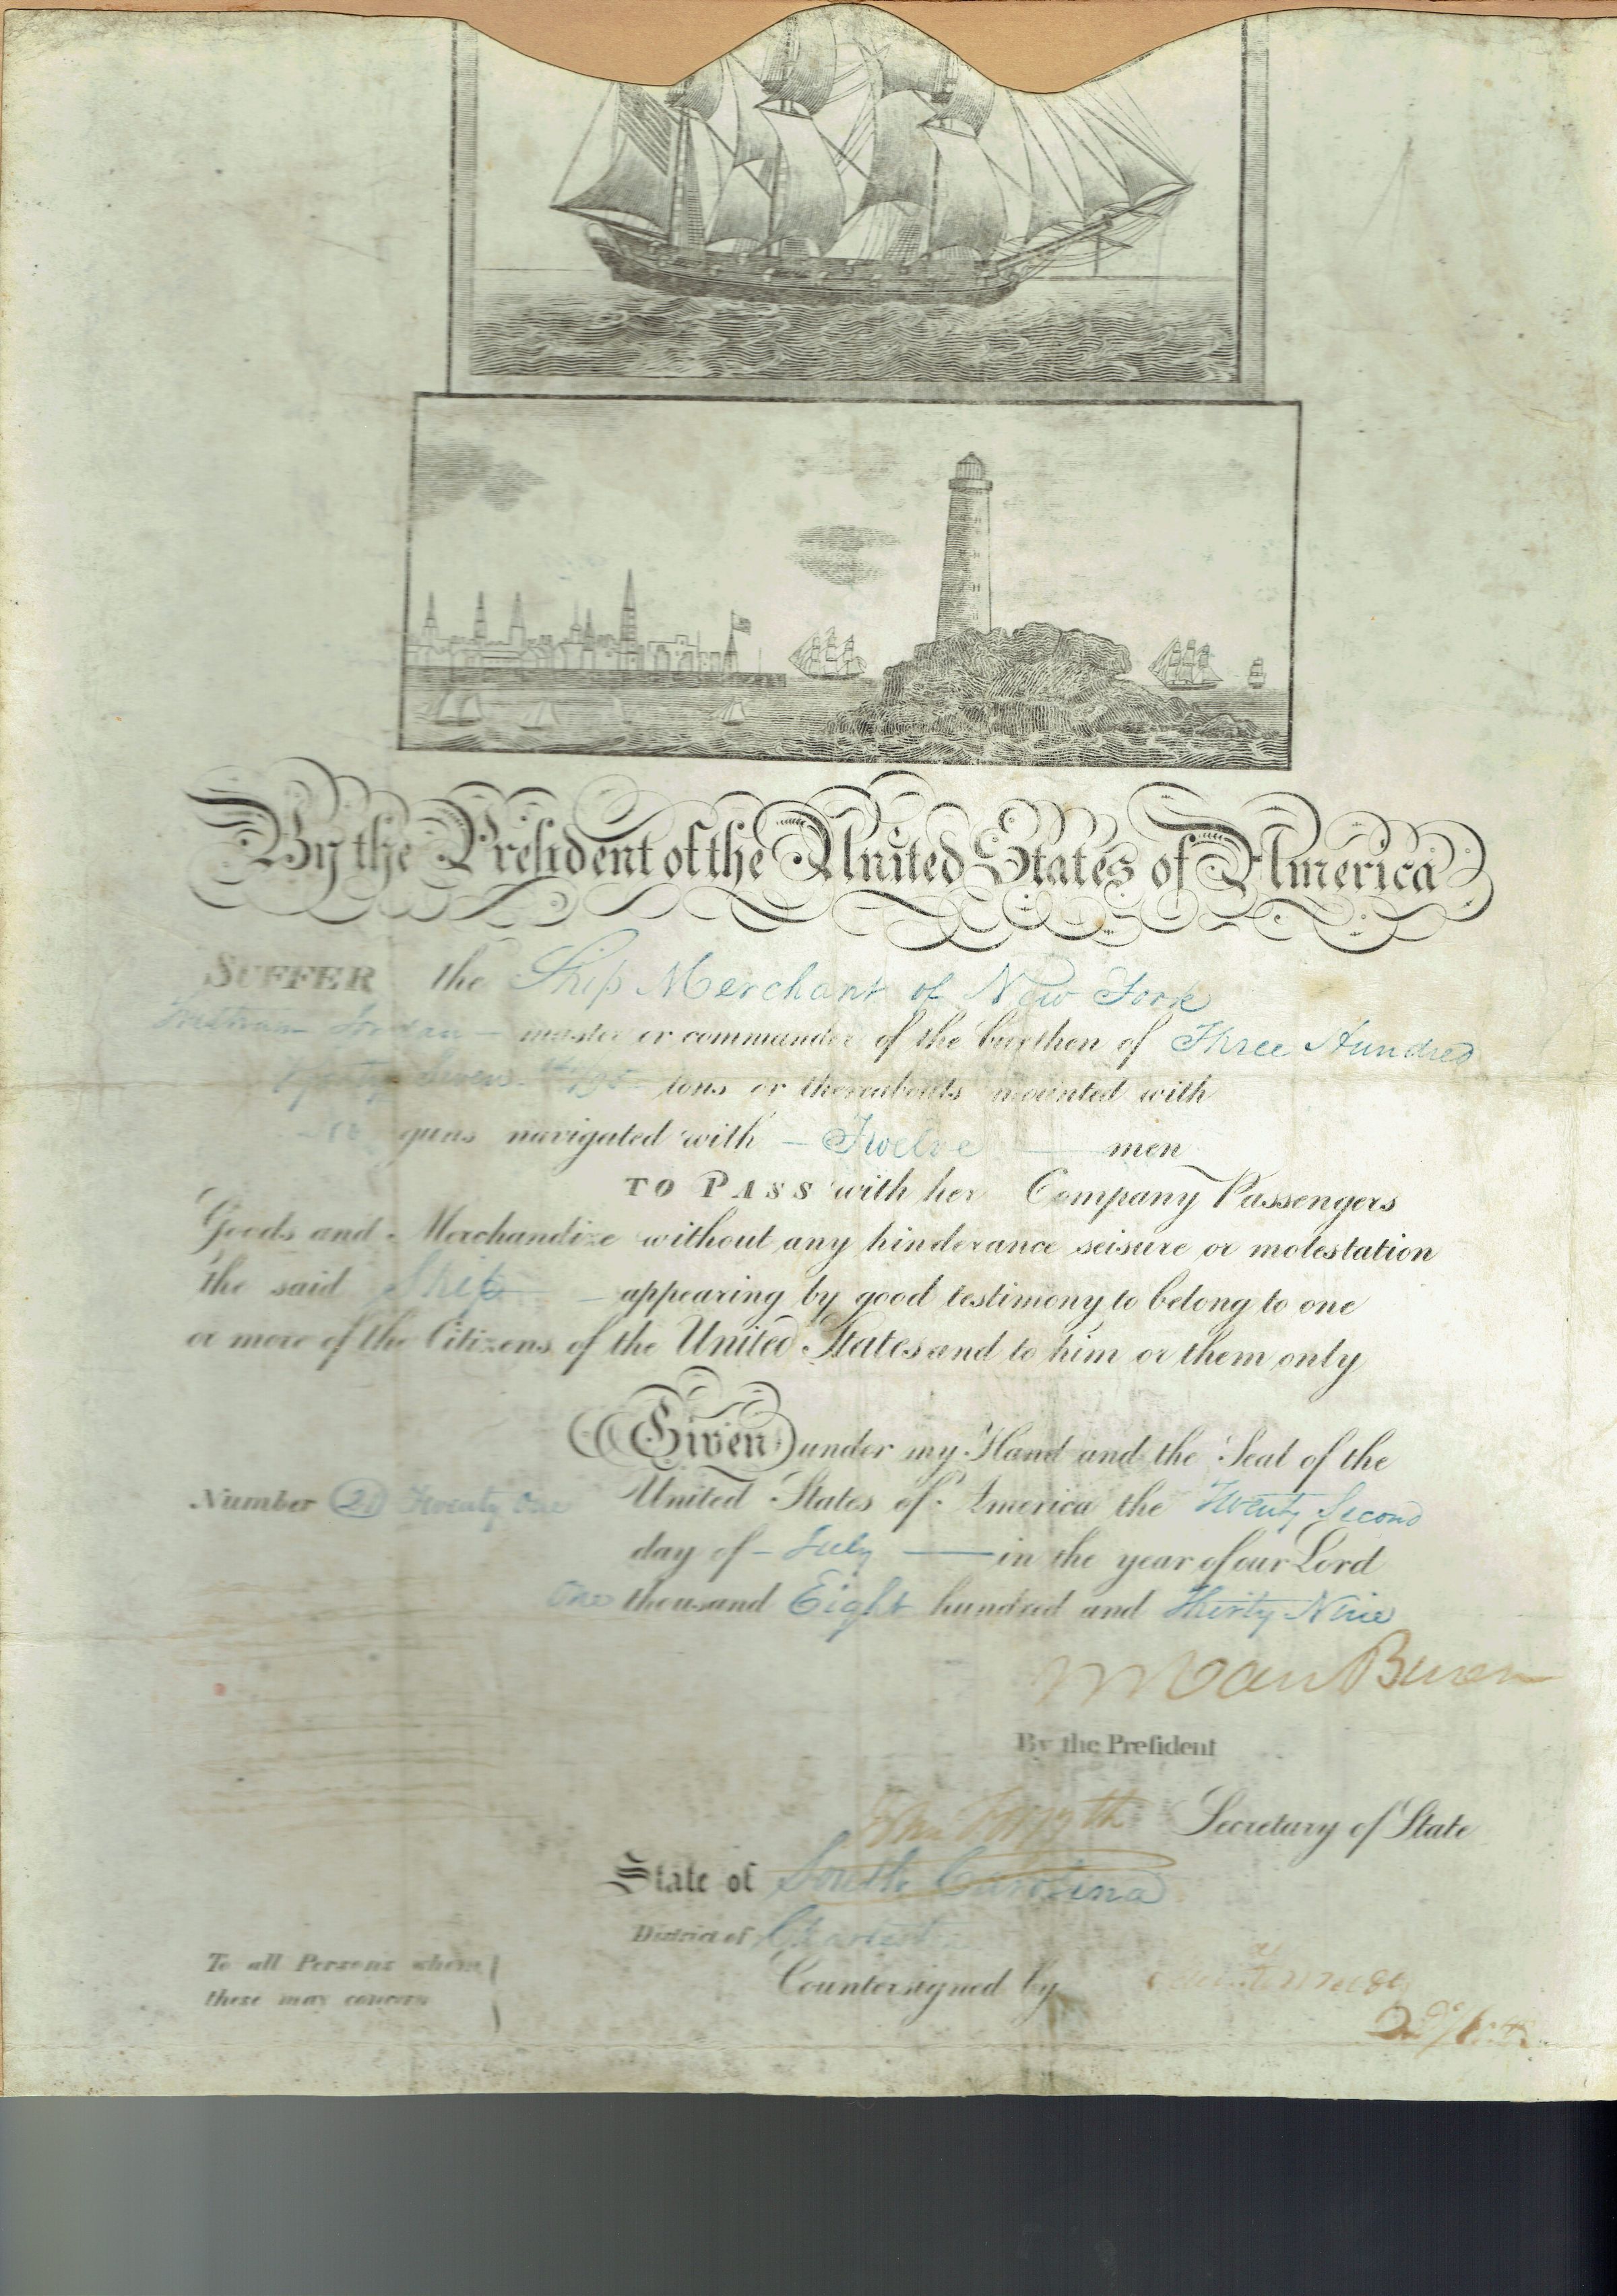 By the President of the United States of America
SUFFER the Ship Merchant of New York
Jordan — master or commander of the burthen of Three Hundred
Seven tons or thereabouts mounted with
no guns navigated with — Twelve — men
TO PASS with her Company Passengers
Goods and Merchandize without any hinderance seisure or molestation
the said Ship — appearing by good testimony to belong to one
or more of the Citizens of the United States and to him or them only
Given under my Hand and the Seal of the
Number 21 Twenty One United States of America the Twenty Second
day of — July — in the year of our Lord
One thousand Eight hundred and Thirty Nine
M Van Buren
By the President
John Forsyth Secretary of State
State of South Carolina
District of Charleston
To all Persons whom
these may concern
Countersigned by